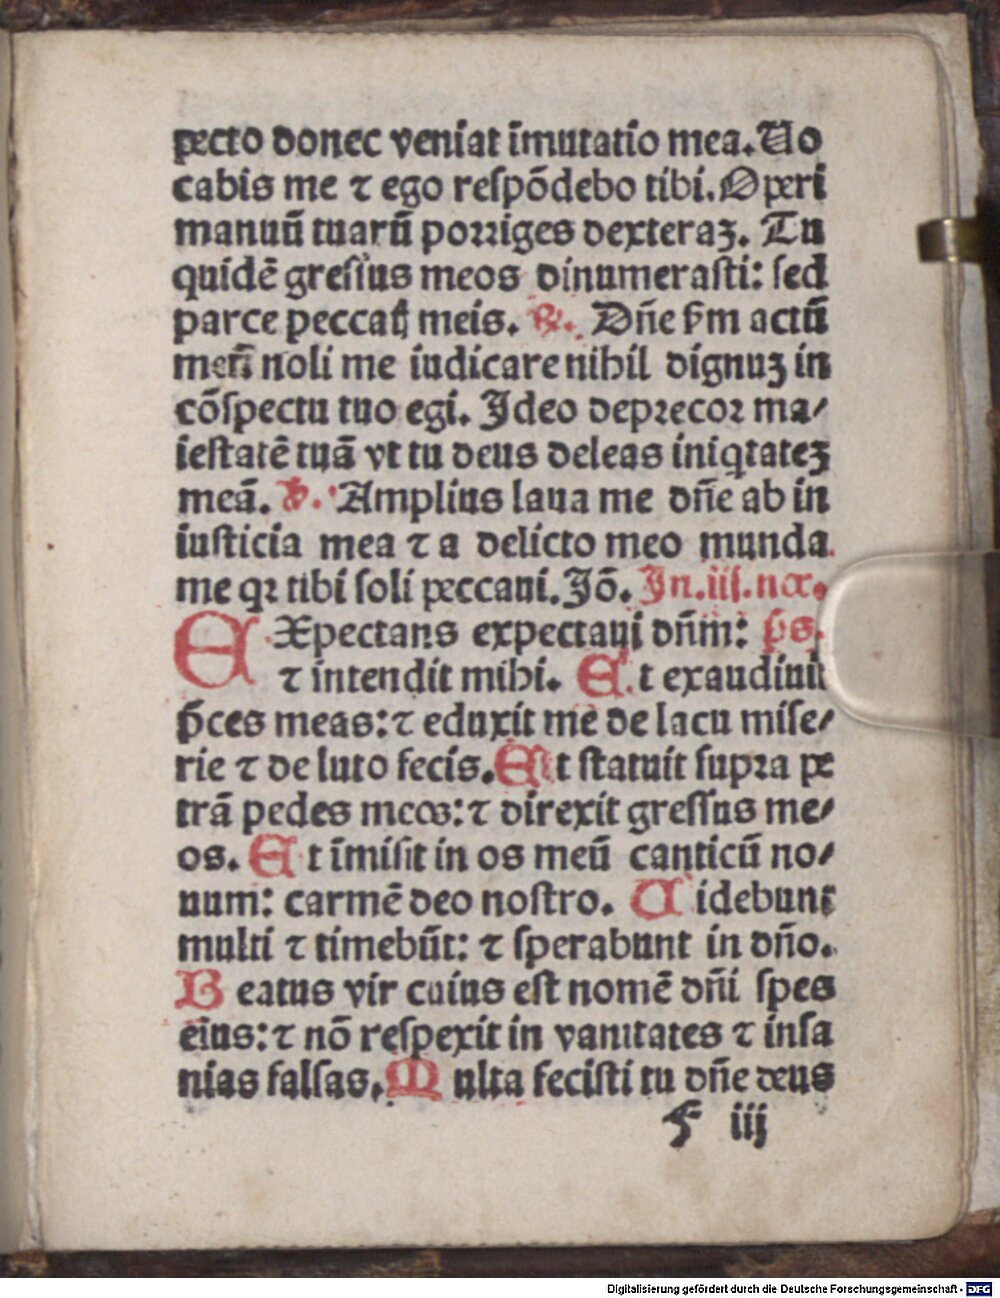 pecto donec veniat īmutatio mea. Uo
cabis me ⁊ ego reſpōdebo tibi. Operi
manuū tuarū porꝛiges dexteraꝫ. Tu
quidē greſſus meos dinumeraſti: ſed
parce peccatꝭ meis. ℟. Dn̄e ẜm actū
meū noli me iudicare nihil dignuꝫ in
cōſpectu tuo egi. Jdeo depꝛecoꝛ ma⸗
ieſtatē tuā vt tu deus deleas iniqtateꝫ
meā. ℣. Amplius laua me dn̄e ab in
iuſticia mea ⁊ a delicto meo munda
me qꝛ tibi ſoli peccaui. Jō. Jn .iii. noc.
EXpectans expectaui dn̄m: p̄s.
⁊ intendit mihi. Et exaudiuit
p̄ces meas: ⁊ eduxit me de lacu miſe⸗
rie ⁊ de luto fecis. Et ſtatuit ſupꝛa pe
trā pedes meos: ⁊ direxit greſſus me⸗
os. Et īmiſit in os meū canticū no⸗
uum: carmē deo noſtro. Uidebunt
multi ⁊ timebūt: ⁊ ſperabunt in dn̄o.
Beatus vir cuius eſt nomē dn̄i ſpes
eius: ⁊ nō reſpexit in vanitates ⁊ inſa
nias falſas. Multa feciſti tu dn̄e deus
f iij
Digitalisierung gefördert durch die Deutsche Forschungsgemeinschaft - DFG